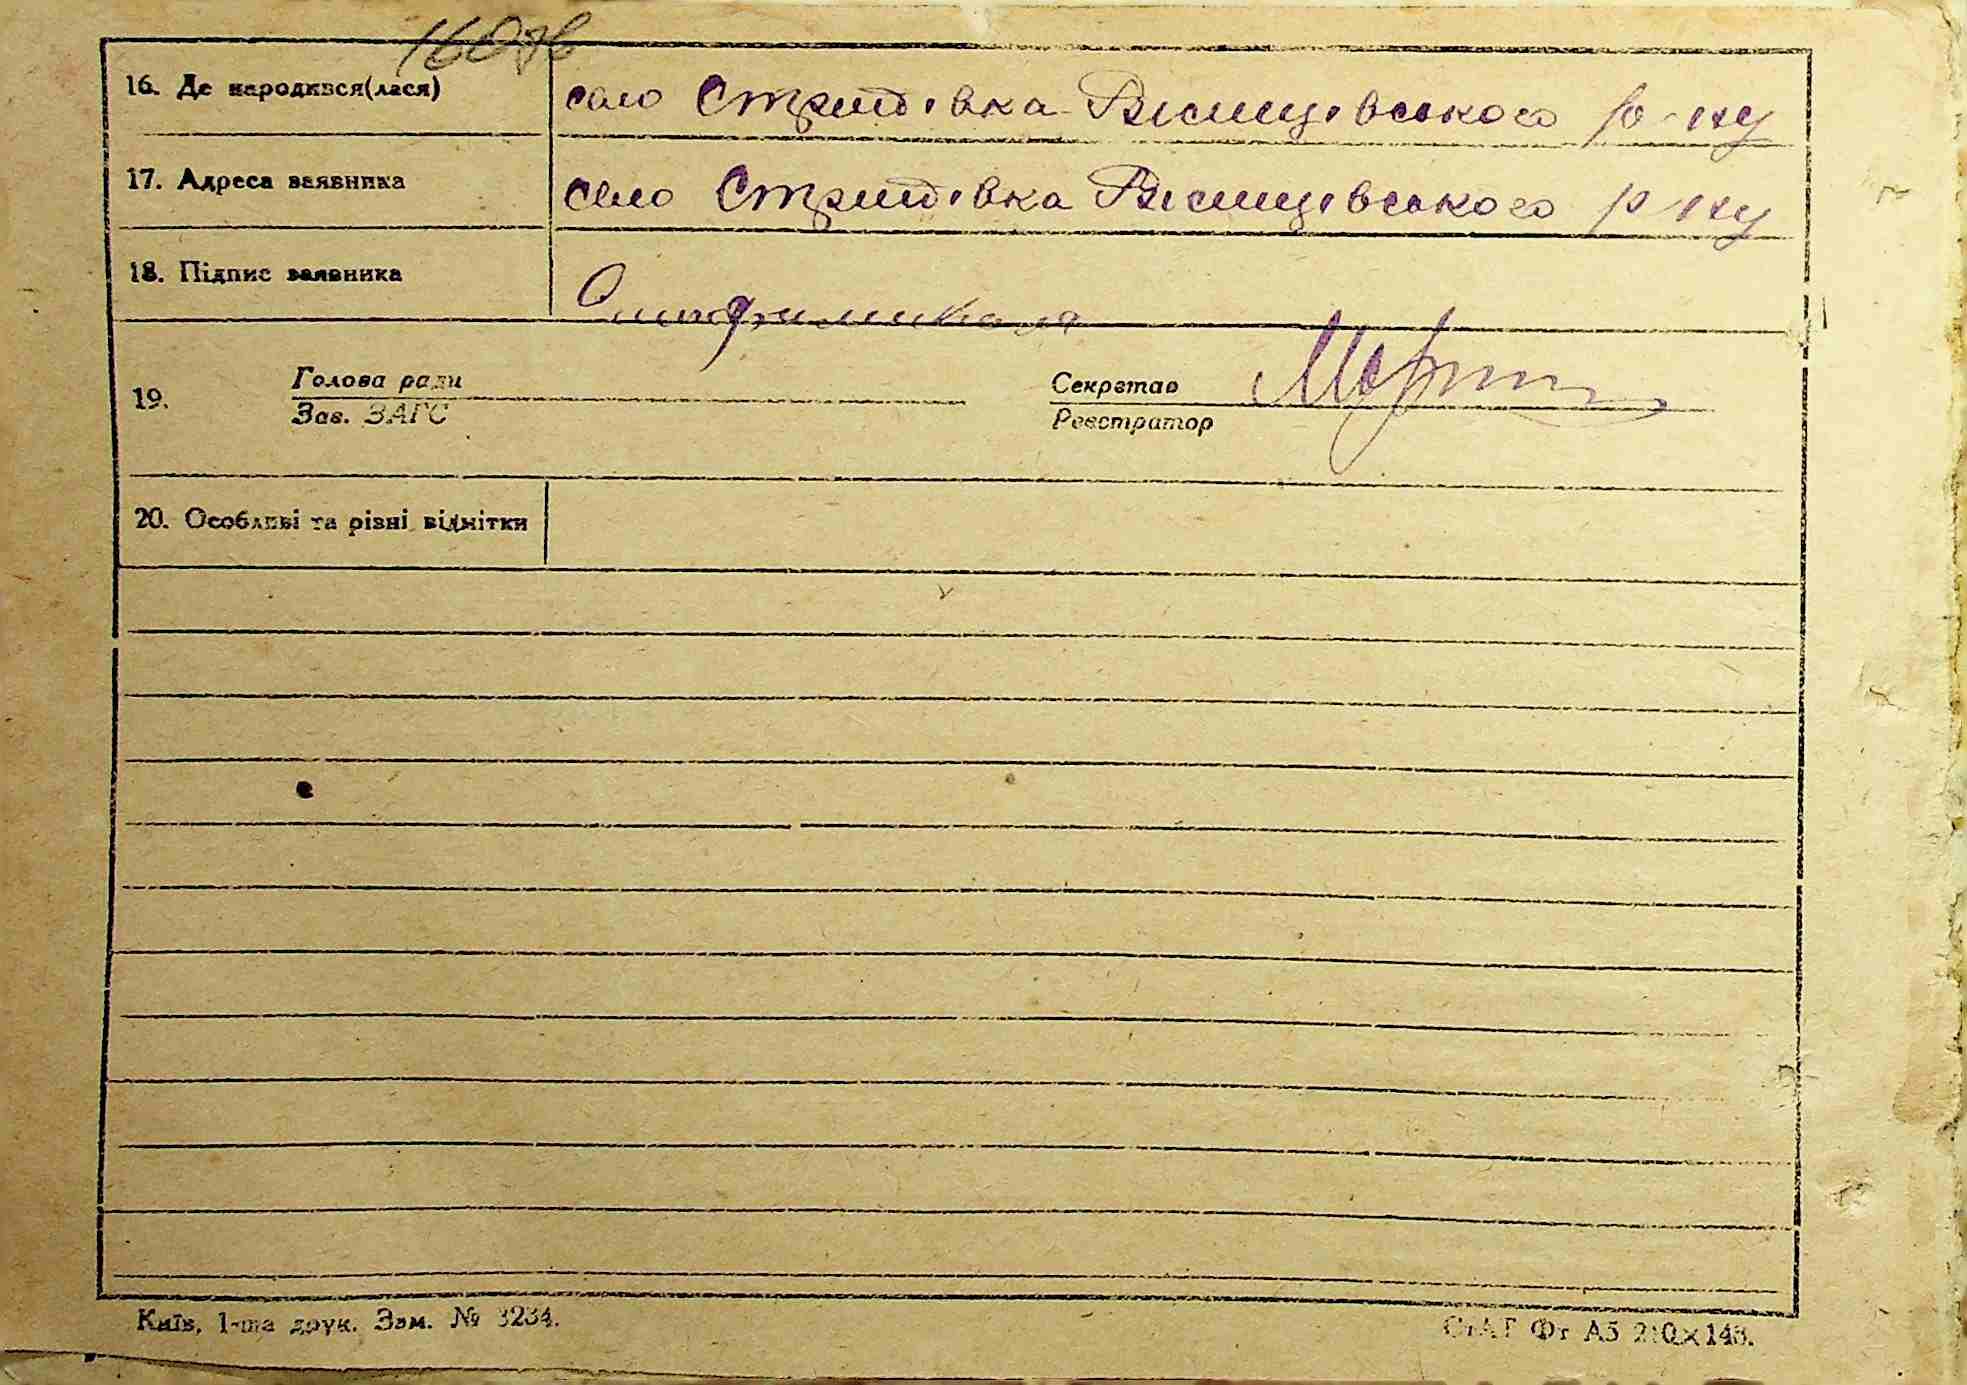 160зв
16. Де народився(лася) село Стриївка Вишнівецького р-ну
17. Адреса заявника село Стриївка Вишнівецького р-ну
18. Підпис заявника
19. Голова ради Секретар
Зав. ЗАГС Реєстратор
20. Особливі та різні відмітки
Київ, 1-ша друк. Зам. № 3234. СтАГ Фт А5 210×148.